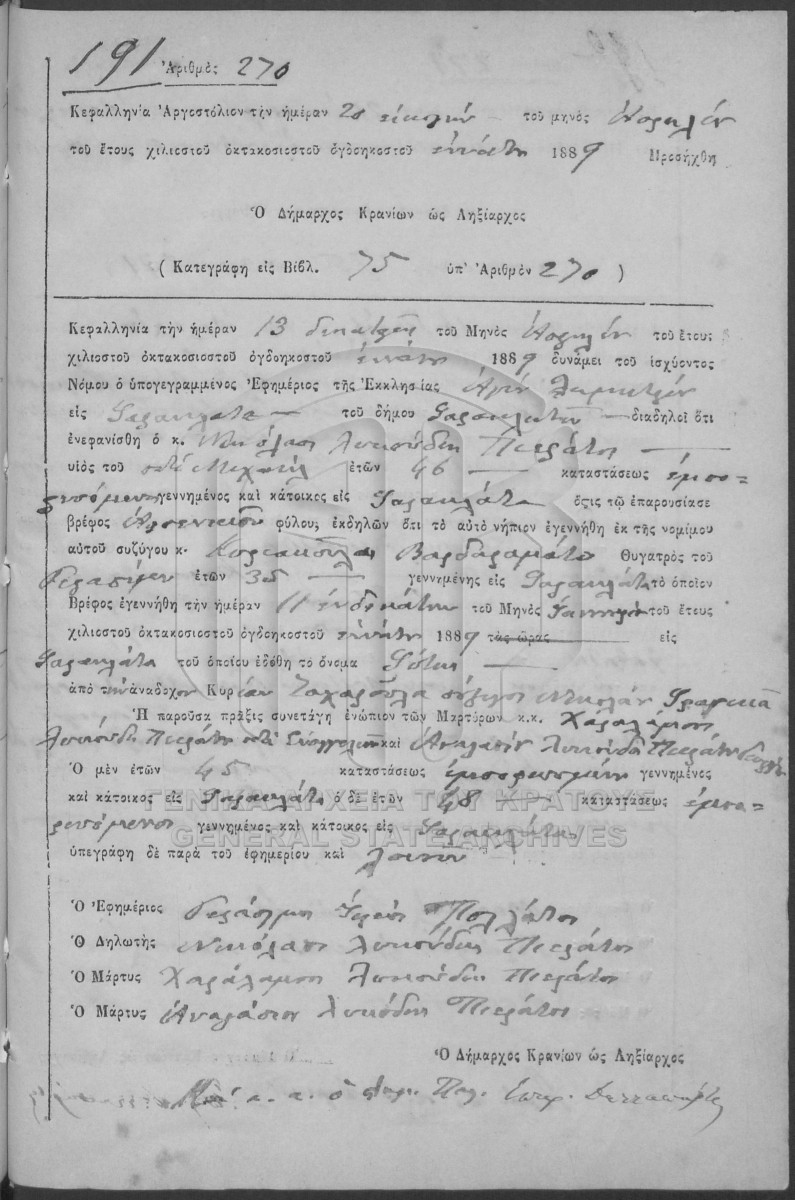 191 Ἀριθμὸς 270
Κεφαλληνία Ἀργοστόλιον τὴν ἡμέραν 20 εἰκοστὴν τοῦ μηνὸς Ἀπριλίου
τοῦ ἔτους χιλιοστοῦ ὀκτακοσιοστοῦ ὀγδοηκοστοῦ ἐννάτου 1889 Προσήχθη
Ὁ Δήμαρχος Κρανίων ὡς Ληξίαρχος
(Κατεγράφη εἰς Βιβλ. 75 ὑπ' Ἀριθμὸν 270)
Κεφαλληνία τὴν ἡμέραν 13 τοῦ Μηνὸς Ἀπριλίου τοῦ ἔτους
χιλιοστοῦ ὀκτακοσιοστοῦ ὀγδοηκοστοῦ ἐννάτου 1889 δυνάμει τοῦ ἰσχύοντος
Νόμου ὁ ὑπογεγραμμένος Ἐφημέριος τῆς Ἐκκλησίας Ἁγίου Δημητρίου
εἰς Φαρακλάτα τοῦ δήμου διαδηλοῖ ὅτι
ἐνεφανίσθη ὁ κ. Νικόλαος Λουκούδης Πιεράτος
υἱὸς τοῦ ποτὲ Μιχαὴλ ἐτῶν 46 καταστάσεως ἐμπο-
ρευόμενος γεννημένος καὶ κάτοικος εἰς Φαρακλάτα ὅςτις τῷ ἐπαρουσίασε
βρέφος Ἀρσενικοῦ φύλου, ἐκδηλῶν ὅτι τὸ αὐτὸ νήπιον ἐγεννήθη ἐκ τῆς νομίμου
αὐτοῦ συζύγου κ. Κυριακούλα Βαρδαραμάτου Θυγατρὸς τοῦ
Γερασίμου ἐτῶν 35 γεννημένης εἰς Φαρακλάτα, τὸ ὁποῖον
Βρέφος ἐγεννήθη τὴν ἡμέραν 11 ἑνδεκάτην τοῦ Μηνὸς τοῦ ἔτους
χιλιοστοῦ ὀκτακοσιοστοῦ ὀγδοηκοστοῦ ἐννάτου 1889 τὰς ὥρας εἰς
Φαρακλάτα τοῦ ὁποίου ἐδόθη τὸ ὄνομα Φώτιος
ἀπὸ τὴν ἀνάδοχον Κυρίαν Ζαχαρούλα σύζυγος Νικολάου
Ἡ παροῦσα πρᾶξις συνετάγη ἐνώπιον τῶν Μαρτύρων κ.κ. Χαραλάμπου
Λουκούδη Πιεράτου ποτὲ καὶ Ἀναστασίου Λουκούδη Πιεράτου
Ὁ μὲν ἐτῶν 45 καταστάσεως ἐμπορευομένου γεννημένος
καὶ κάτοικος εἰς Φαρακλάτα ὁ δὲ ἐτῶν 48 καταστάσεως ἐμπο-
ρευόμενος γεννημένος καὶ κάτοικος εἰς Φαρακλάτα
ὑπεγράφη δὲ παρὰ τοῦ ἐφημερίου καὶ λοιπῶν
ΓΕΝΙΚΑ ΑΡΧΕΙΑ ΤΟΥ ΚΡΑΤΟΥΣ
GENERAL STATE ARCHIVES
Ὁ Ἐφημέριος Γεράσιμος Ἱερεὺς
Ὁ Δηλωτὴς Νικόλαος Λουκούδης Πιεράτος
Ὁ Μάρτυς Χαράλαμπος Λουκούδης Πιεράτος
Ὁ Μάρτυς Αναστάσιος Λουκούδης Πιεράτος
Ὁ Δήμαρχος Κρανίων ὡς Ληξίαρχος